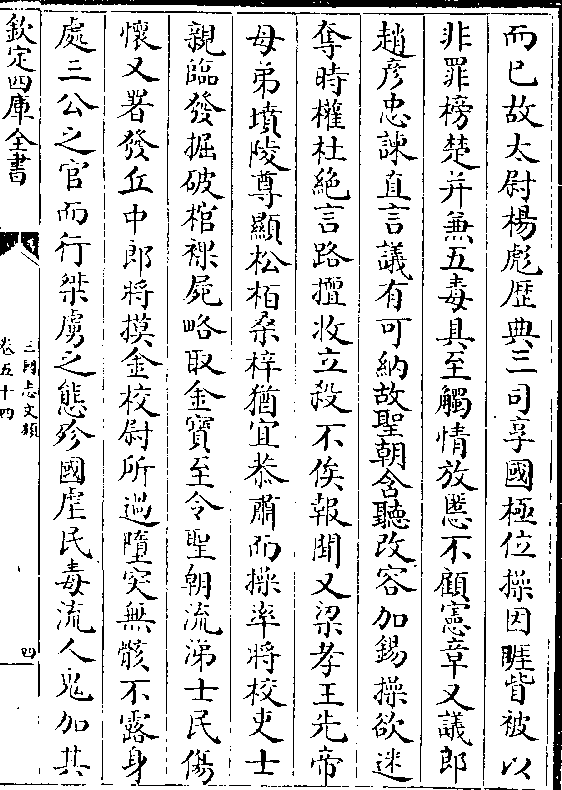 而已故太尉楊彪歴典三司享國極位操因睚眥被以
非罪榜楚并兼五毒具至觸情放慝不顧憲章又議郎
趙彦忠諫直言議有可納故聖朝含聽改容加錫操欲迷
奪時權杜絶言路擅收立殺不俟報聞又梁孝王先帝
母弟墳陵尊顯松栢桑梓猶宜恭肅而操率將校吏士
親臨發掘破棺祼屍略取金寳至令聖朝流涕士民傷
懷又署發丘中郎將摸金校尉所過墮突無骸不露身
處三公之官而行桀虜之態殄國虐民毒流人鬼加其
欽定四庫全書
三國志文類
卷五十四
四